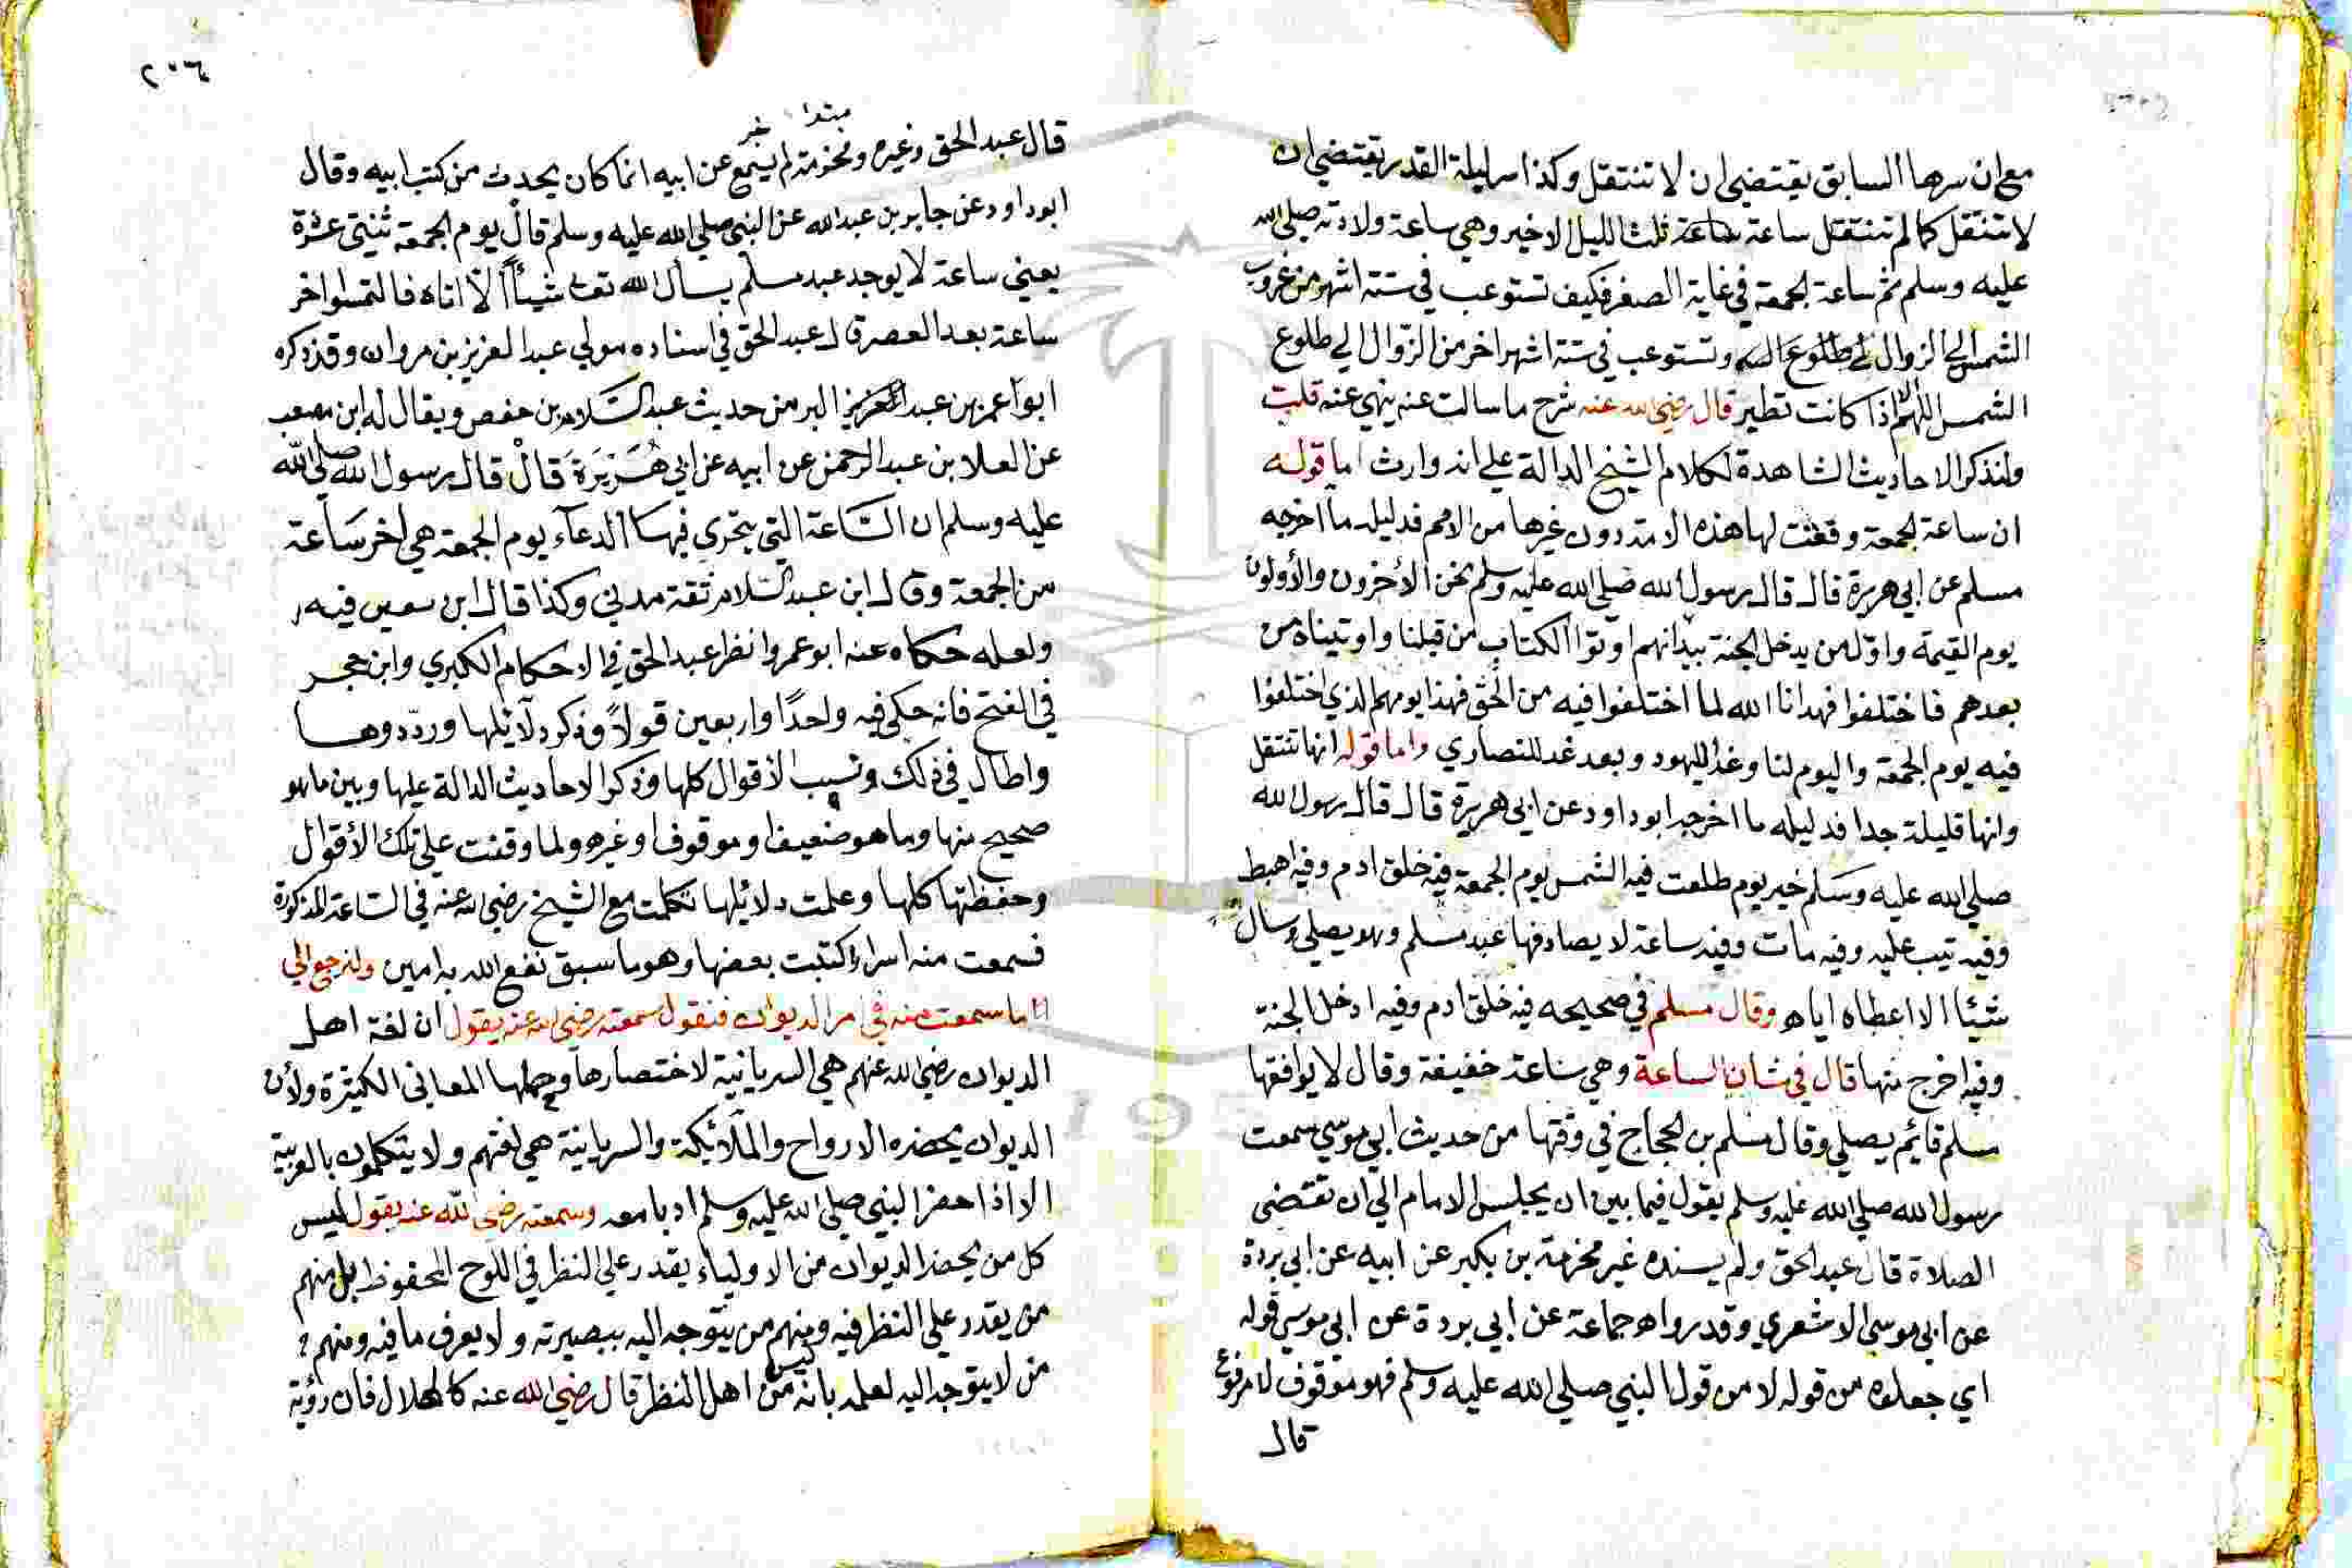 مع ان سرها السابق يقتضي ان لا تنتقل وكذا سر ليلة القدر يقتضي ان
لا تنتقل كما لم تنتقل ساعة ثلث الليل الاخير وهي ساعة ولادته صلى الله
عليه وسلم ثم ساعة الجمعة في غاية الصغر فكيف تستوعب في ستة اشهر من غروب
الشمس الي الزوال وتستوعب في ستة اشهر اخر من الزوال الي طلوع
الشمس اللهم الا اذا كانت تطير قال رضي الله عنه شرح ما سالت عنه ينهي عنه قلت
ولنذكر الاحاديث الشاهدة لكلام الشيخ الدالة علي انه وارث اما قوله
ان ساعة الجمعة وقعت لها هذه الامة دون غيرها من الامم فدليله ما اخرجه
مسلم عن ابي هريرة قال قال رسول الله صلي الله عليه وسلم نحن الأخرون والأولون
يوم القيمة واول من يدخل الجنة بيد انهم اوتوا الكتاب من قبلنا واوتيناه من
بعدهم فاختلفوا فهدانا الله لما اختلفوا فيه من الحق فهذا يومهم الذي اختلفوا
فيه يوم الجمعة واليوم لنا وغد لليهود وبعد غد للنصاري واما قوله انها تنتقل
وانها قليلة جدا فدليله ما اخرجه ابو داود عن ابي هريرة قال قال رسول الله
صلي الله عليه وسلم خير يوم طلعت فيه الشمس يوم الجمعة فيه خلق ادم وفيه اهبط
وفيه تيب عليه وفيه مات وفيه ساعة لا يصادفها عبد مسلم وهو يصلي وسال
شيئا الا اعطاه اياه وقال مسلم في صحيحه فيه خلق ادم وفيه ادخل الجنة
وفيه اخرج منها قال في شان الساعة وهي ساعة خفيفة وقال لا يوافقها
مسلم قايم يصلي وقال مسلم بن الحجاج في وقتها من حديث ابي موسي سمعت
رسول الله صلي الله عليه وسلم يقول فيما بين ان يجلس الامام الي ان تقتضى
الصلاة قال عبد الحق ولم يسنده غير مخرمة بن بكير عن ابيه عن ابي بردة
عن ابي موسى الاشعري وقد رواه جماعة عن ابي بردة عن ابي موسي قوله
اي جعلوه من قوله لا من قول النبي صلي الله عليه وسلم فهو موقوف لا مرفوع
قال
٢٠٦
مبتدا خبر
قال عبد الحق وغيره ومخرمة لم يسمع عن ابيه انما كان يحدث من كتب ابيه وقال
ابو داود عن جابر بن عبد الله عن النبي صلي الله عليه وسلم قال يوم الجمعة ثنتى عشرة
يعني ساعة لا يوجد عبد مسلم يسأل الله تعا شيئاً الا اتاه فالتمسوا اخر
ساعة بعد العصر قال عبد الحق في اسناده مولي عبد العزيز بن مروان وقد ذكره
ابو عمر بن عبد البر من حديث عبد السلام بن حفص ويقال له ابن مصعب
عن العلا بن عبد الرحمن عن ابيه عن ابي هُرَيْرَةَ قال قال رسول الله صلي الله
عليه وسلم ان السّاعة التي يتحري فيها الدعآء يوم الجمعة هي اخر ساعة
من الجمعة وقال ابن عبد السلام ثقة مدني وكذا قال ابن معين فيه
ولعله حكاه عنه ابو عمر وانظر عبد الحق في الاحكام الكبري وابن حجر
في الفتح فانه حكي فيه واحدًا واربعين قولاً وذكر دلآئلها ورددوها
واطال في ذلك ونسب الأقوال كلها وذكر الاحاديث الدالة عليها وبين ما هو
صحيح منها وما هو ضعيف او موقوف او غيره ولما وقفت علي تلك الأقوال
وحفظتها كلها وعلمت دلائلها تكلمت مع الشيخ رضي الله عنه في الساعة المذكورة
فسمعت منه اسرارا كتبت بعضها وهو ما سبق نفع الله به امين ولنرجع الي
ما سمعت منه في امر الديوان فنقول سمعته رضي الله عنه يقول ان لغة اهل
الديوان رضي الله عنهم هي السريانية لاختصارها وجملها المعاني الكثيرة ولأن
الديوان يحضره الارواح والملآئكة والسريانية هي لغتهم ولا يتكلمون بالعربية
الا اذا حضر النبي صلي الله عليه وسلم ادبا معه وسمعته رضي الله عنه يقول ليس
كل من يحضر الديوان من الاولياء يقدر علي النظر في اللوح المحفوظ بل منهم
من يقدر علي النظر فيه ومنهم من يتوجه اليه ببصيرته ولا يعرف ما فيه ومنهم
من لا يتوجه اليه لعلمه بانه ليس من اهل النظر قال رضي الله عنه كالهلال فان رؤية